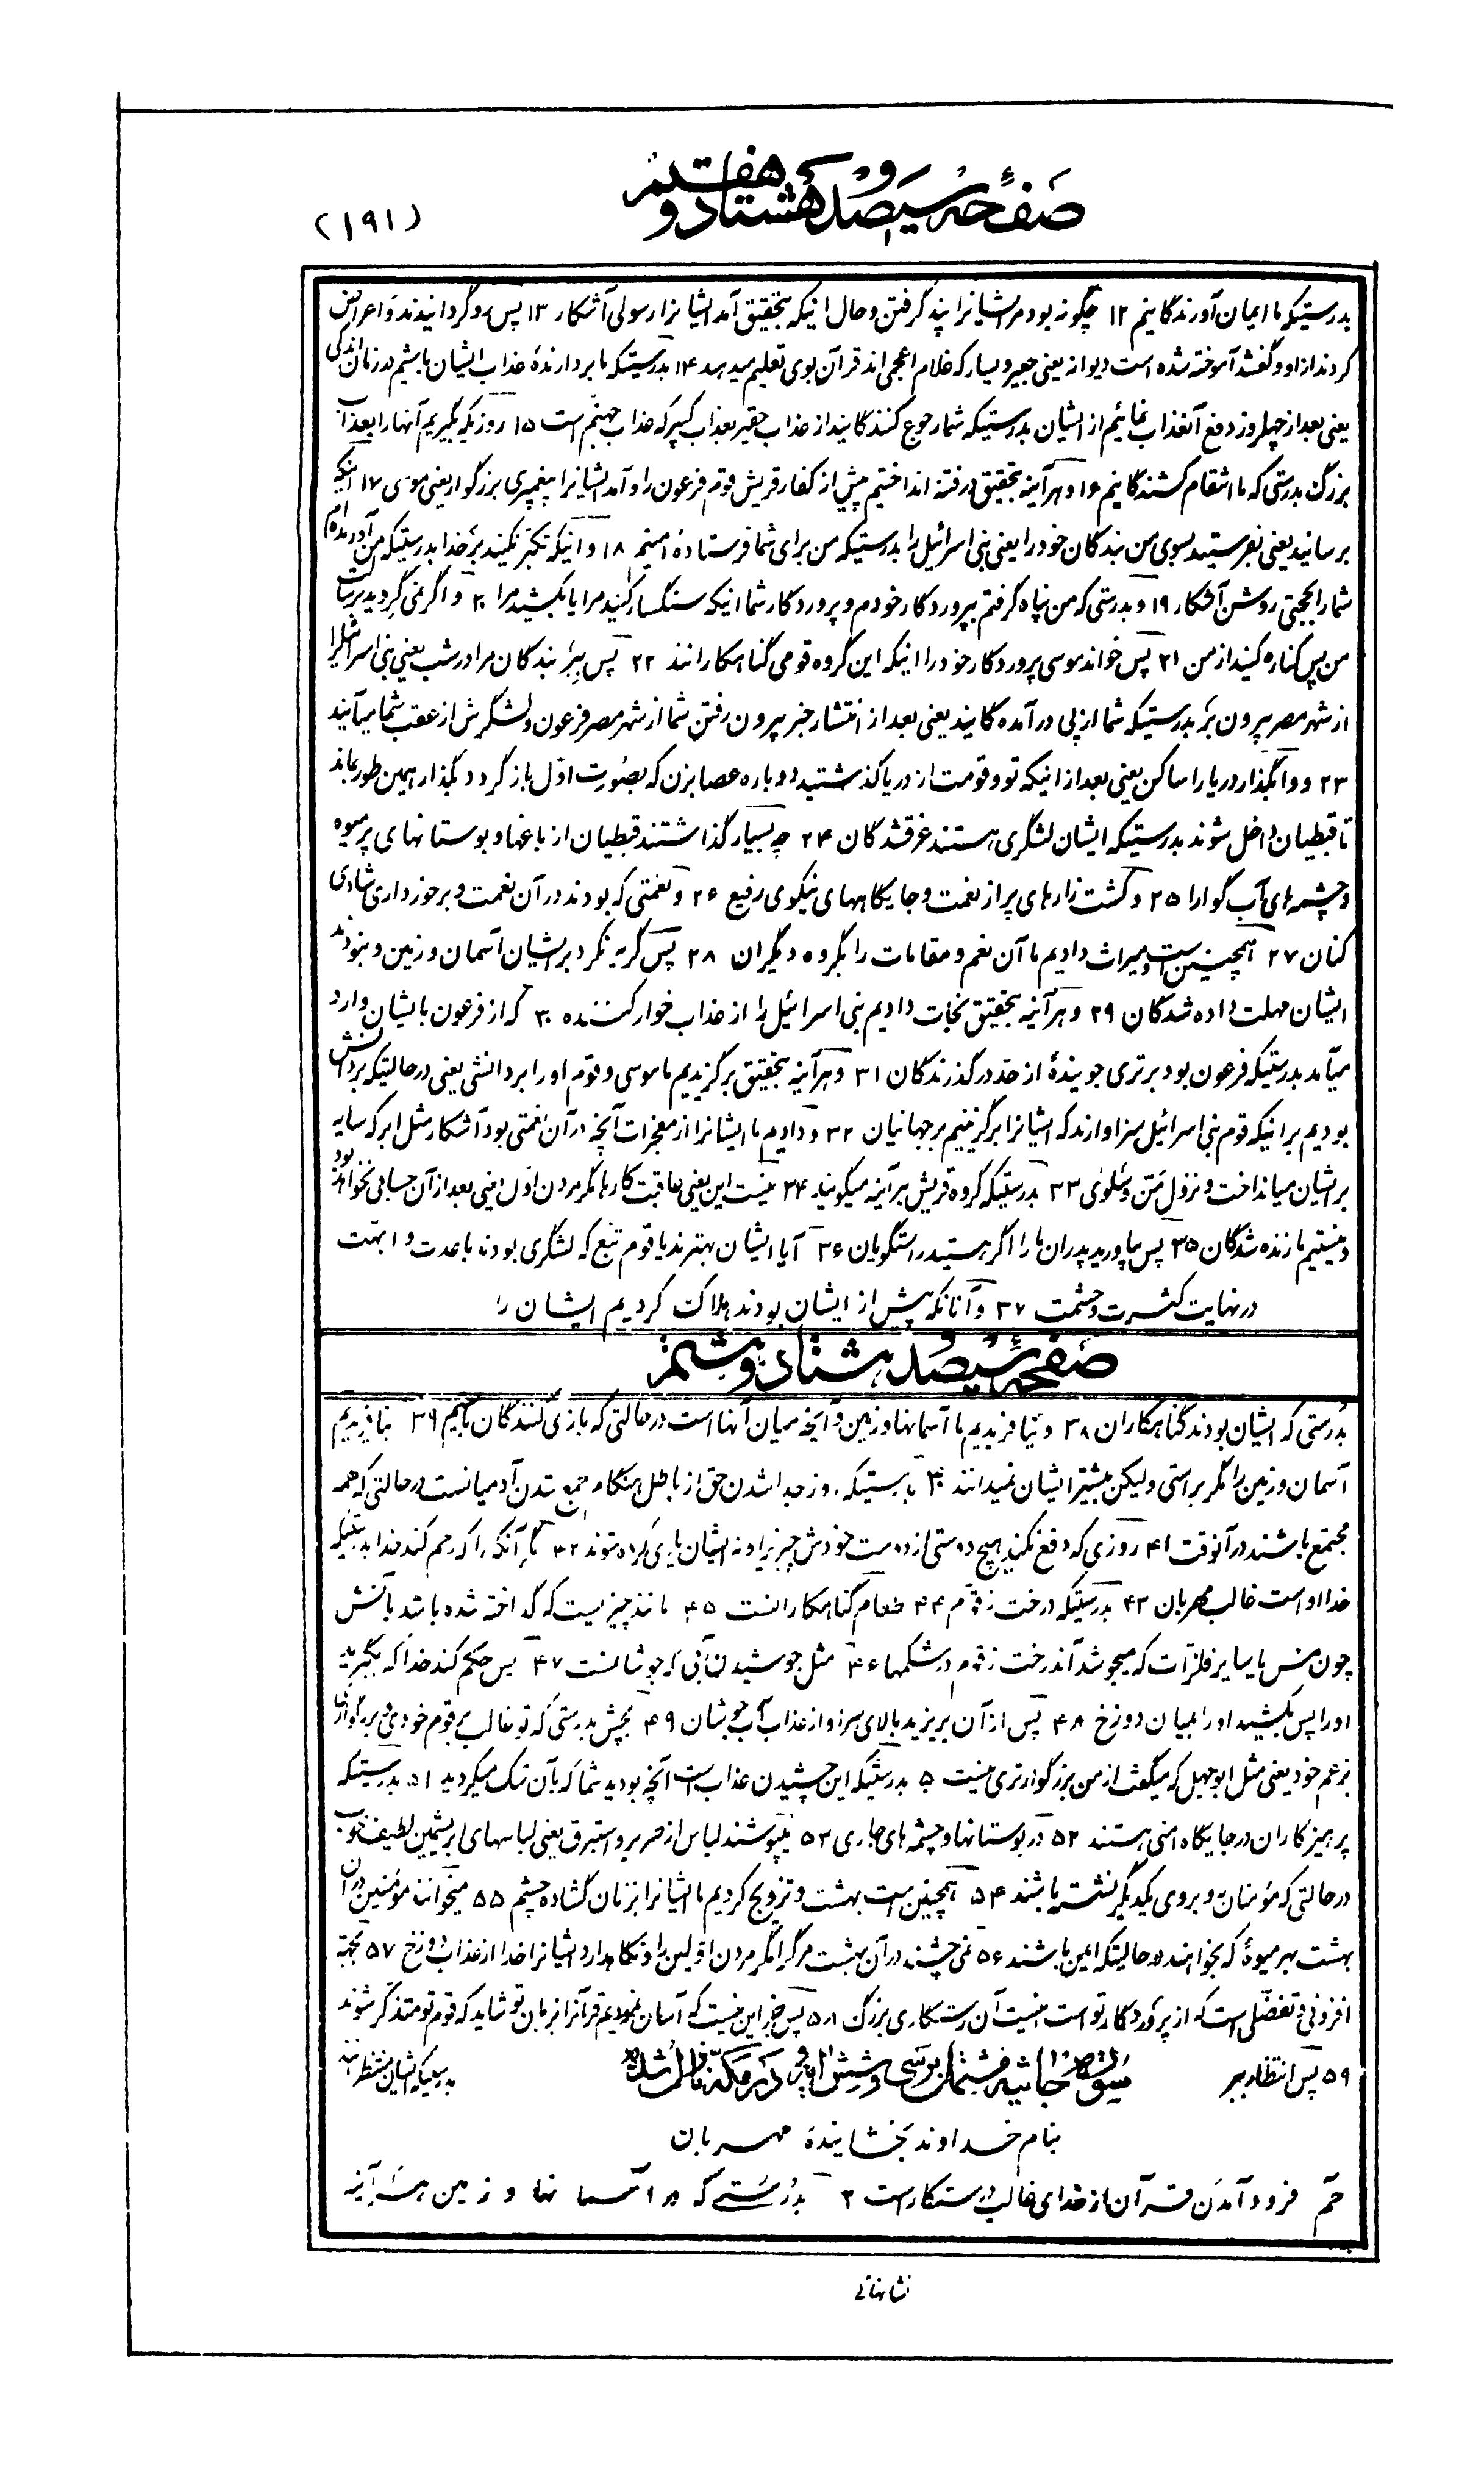 صفحهٔ سیصد و هشتاد و هفتم
(۱۹۱)
بدرستیکه ما ایمان آورندگانیم ۱۲ چگونه بود مر ایشانرا پند گرفتن و حال اینکه بتحقیق آمد ایشانرا رسولی آشکار ۱۳ پس رو گردانیدند و اعراض
کردند از او و گفتند آموخته شده است دیوانه یعنی جبیر و یسار که غلام اعجمی اند قرآن بوی تعلیم میدهد ۱۴ بدرستیکه ما بردارندهٔ عذاب ایشان باشیم در زمان اندکی
یعنی بعد از چهلروز دفع آنعذاب نمائیم از ایشان بدرستیکه شما رجوع کنندگانید از عذاب حقیر بعذاب کبیر که عذاب جهنم است ۱۵ روزیکه بگیریم آنها را بعذاب
بزرگ بدرستی که ما انتقام کشندگانیم ۱۶ و هر آینه بتحقیق در فتنه انداختیم پیش از کفار قریش قوم فرعون را و آمد ایشانرا پیغمبری بزرگوار یعنی موسی ۱۷ اینکه
برسانید یعنی بفرستید بسوی من بندگان خود را یعنی بنی اسرائیل را بدرستیکه من برای شما فرستاده امینم ۱۸ و اینکه تکبر نکنید بر خدا بدرستیکه من آورنده ام
شما را بحجتی روشن آشکار ۱۹ و بدرستی که من پناه گرفتم بپروردگار خودم و پروردگار شما اینکه سنگسار کنید مرا یا بکشید مرا ۲۰ و اگر نمی گروید برسالت
من پس کناره کنید از من ۲۱ پس خواند موسی پروردگار خود را اینکه این گروه قومی گناهکارانند ۲۲ پس ببر بندگان مرا در شب یعنی بنی اسرائیل را
از شهر مصر بیرون بر بدرستیکه شما از پی در آمده گانید یعنی بعد از انتشار خبر بیرون رفتن شما از شهر مصر فرعون و لشگرش از عقب شما میآیند
۲۳ و واگذار دریا را ساکن یعنی بعد از اینکه تو و قومت از دریا گذشتید دوباره عصا بزن که بصورت اول باز گردد بگذار همین طور بماند
تا قبطیان داخل شوند بدرستیکه ایشان لشگری هستند غرقشدگان ۲۴ چه بسیار گذاشتند قبطیان از باغها و بوستانهای پر میوه
و چشمه های آب گوارا ۲۵ و کشت زارهای پر از نعمت و جایگاههای نیکوی رفیع ۲۶ و نعمتی که بودند در آن نعمت و برخورداری شادی
کنان ۲۷ همچنین است و میراث دادیم ما آن نعم و مقامات را بگروه دیگران ۲۸ پس گریه نکرد بر ایشان آسمان و زمین و نبودند
ایشان مهلت داده شدگان ۲۹ و هر آینه بتحقیق نجات دادیم بنی اسرائیل را از عذاب خوار کننده ۳۰ که از فرعون بایشان وارد
میآمد بدرستیکه فرعون بود برتری جویندهٔ از حد در گذرندگان ۳۱ و هر آینه بتحقیق برگزیدیم ما موسی و قوم او را بر دانشی یعنی در حالتیکه بر دانش
بودیم بر اینکه قوم بنی اسرائیل سزاوارند که ایشانرا برگزینیم بر جهانیان ۳۲ و دادیم ما ایشانرا از معجزات آنچه در آن نعمتی بود آشکار مثل ابر که سایه
بر ایشان میانداخت و نزول من و سلوی ۳۳ بدرستیکه گروه قریش هر آینه میگویند ۳۴ نیست این یعنی عاقبت کار ما مگر مردن اول یعنی بعد از آن حسابی نخواهد بود
و نیستیم ما زنده شدگان ۳۵ پس بیاورید پدران ما را اگر هستید راستگویان ۳۶ آیا ایشان بهترند یا قوم تبع که لشگری بودند با عدت و ابهت
در نهایت کثرت و حشمت ۳۷ و آنانکه پیش از ایشان بودند هلاک کردیم ایشان را
صفحهٔ سیصد و هشتاد و هشتم
بدرستی که ایشان بودند گناهکاران ۳۸ و نیافریدیم ما آسمانها و زمین و آنچه میان آنها است در حالتی که بازی کنندگان باشیم ۳۹ نیافریدیم
آسمان و زمین را مگر براستی ولیکن بیشتر ایشان نمیدانند ۴۰ بدرستیکه روز جدا شدن حق از باطل هنگام جمع شدن آدمیانست در حالتی که همه
مجتمع باشند در آنوقت ۴۱ روزی که دفع نکند هیچ دوستی از دوست خودش چیزیرا و نه ایشان یاری کرده شوند ۴۲ مگر آنکه را که رحم کند خدا بدرستیکه
خدا او است غالب مهربان ۴۳ بدرستیکه درخت زقوم ۴۴ طعام گناهکارانست ۴۵ مانند چیزیست که گداخته شده باشد بآتش
چون مس یا سایر فلزات که میجوشد آندرخت زقوم در شکمها ۴۶ مثل جوشیدن آبی که جوشانست ۴۷ پس حکم کند خدا که بگیرید
او را پس بکشید او را بمیان دوزخ ۴۸ پس از آن بریزید بالای سر او از عذاب آب جوشان ۴۹ بچش بدرستی که تو غالب بر قوم خودی و بزرگواری
بزعم خود یعنی مثل ابوجهل که میگفت از من بزرگوارتری نیست ۵۰ بدرستیکه این چشیدن عذاب است آنچه بودید شما که بآن شک میکردید ۵۱ بدرستیکه
پرهیزکاران در جایگاه امنی هستند ۵۲ در بوستانها و چشمه های جاری ۵۳ میپوشند لباس از حریر و استبرق یعنی لباسهای ابریشمین لطیف خوب
در حالتی که مؤمنان رو بروی یکدیگر نشسته باشند ۵۴ همچنین است بهشت و تزویج کردیم ما ایشانرا بزنان گشاده چشم ۵۵ میخوانند مؤمنین در آن
بهشت بهر میوهٔ که بخواهند در حالیتکه ایمن باشند ۵۶ نمی چشند در آن بهشت مرگ را مگر مردن اولین را و نگاهدارد ایشانرا خدا از عذاب دوزخ ۵۷ بجهة
افزونی و تفضلی است که از پروردگار تو است اینست آن رستگاری بزرگ ۵۸ پس جز این نیست که آسان نمودیم قرآنرا بزبان تو شاید که قوم تو متذکر شوند
۵۹ پس انتظار ببر بدرستیکه ایشان منتظرانند
سورة جاثیه مشتمل بر سی و شش آیه و در مکه نازل شده
بنام خداوند بخشایندهٔ مهربان
حم فرود آمدن قرآن از خدای غالب درستکار است ۲ بدرستی که در آسمانها و زمین هر آینه
نشانهائی